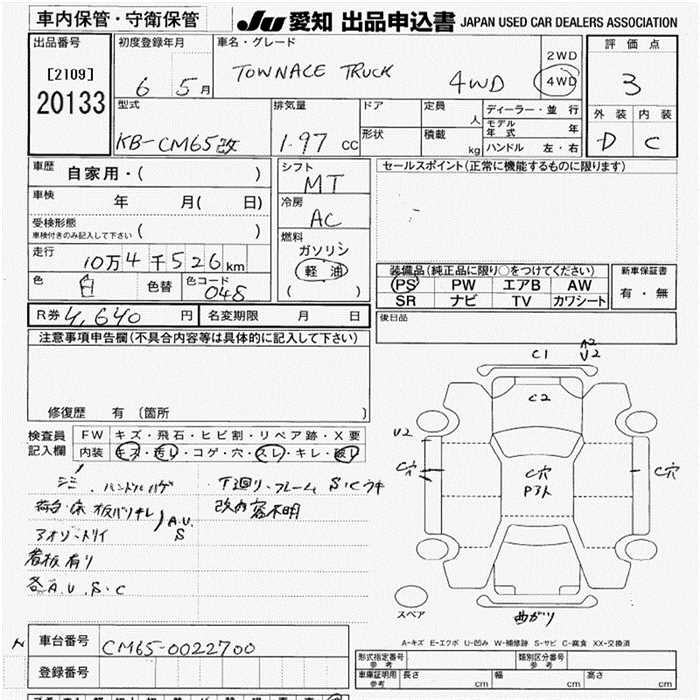 車内保管・守衛保管
JU 愛知 出品申込書 JAPAN USED CAR DEALERS ASSOCIATION
出品番号
[2109]
20133
初度登録年月
6 5月
車名・グレード
TOWNACE TRUCK 4WD
2WD
4WD
評価点
3
外装 内装
D C
型式
KB-CM65改
排気量
1.97 cc
ドア
形状
定員
人
積載
kg
ディーラー・並行
モデル年式 年
ハンドル 左・右
車歴 自家用・( )
車検 年 月( 日)
受検形態
車検付きのみ記入して下さい ( )
走行 10万4千526km
色 白 色替 色コード 048
シフト
MT
冷房
AC
燃料
ガソリン
軽油
( )
セールスポイント(正常に機能するものに限ります)
装備品(純正品に限り○をつけてください)
PS PW エアB AW
SR ナビ TV カワシート
新車保証書
有・無
R券 4,640円 名変期限 月 日
後日品
注意事項申告欄(不具合内容等は具体的に記入して下さい)
修復歴 有 〔箇所 〕
検査員記入欄
FW キズ・飛石・ヒビ割・リペア跡・X要
内装 キズ・汚レ・コゲ・穴・スレ・キレ・破レ
シミ、ハンドルハゲ
荷台・床板バリキレ A.U.S
アオリ
看板有り
各A.U.S.C
下廻り・フレーム S・Cウキ
改内容不明
C1
A2
U2
C2
U2
C穴
C穴
P3入
C穴
曲がり
スペア
A-キズ E-エクボ U-凹み W-補修跡 S-サビ C-腐食 XX-交換済
車台番号 CM65-0022700
登録番号
形式指定番号 参考
類別区分番号 参考
車庫証明用 参考 長さ cm 幅 cm 高さ cm